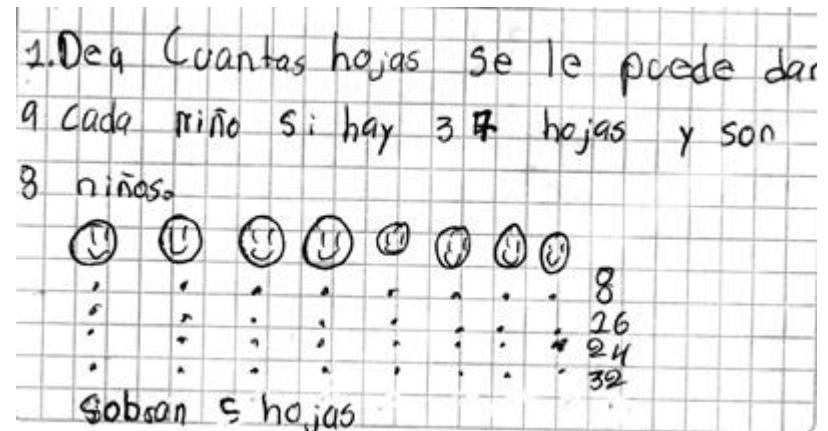 1. Dea Cuantas hojas se le puede dar
a cada niño si hay 37 hojas y son
8 niños.
8
16
24
32
sobran 5 hojas